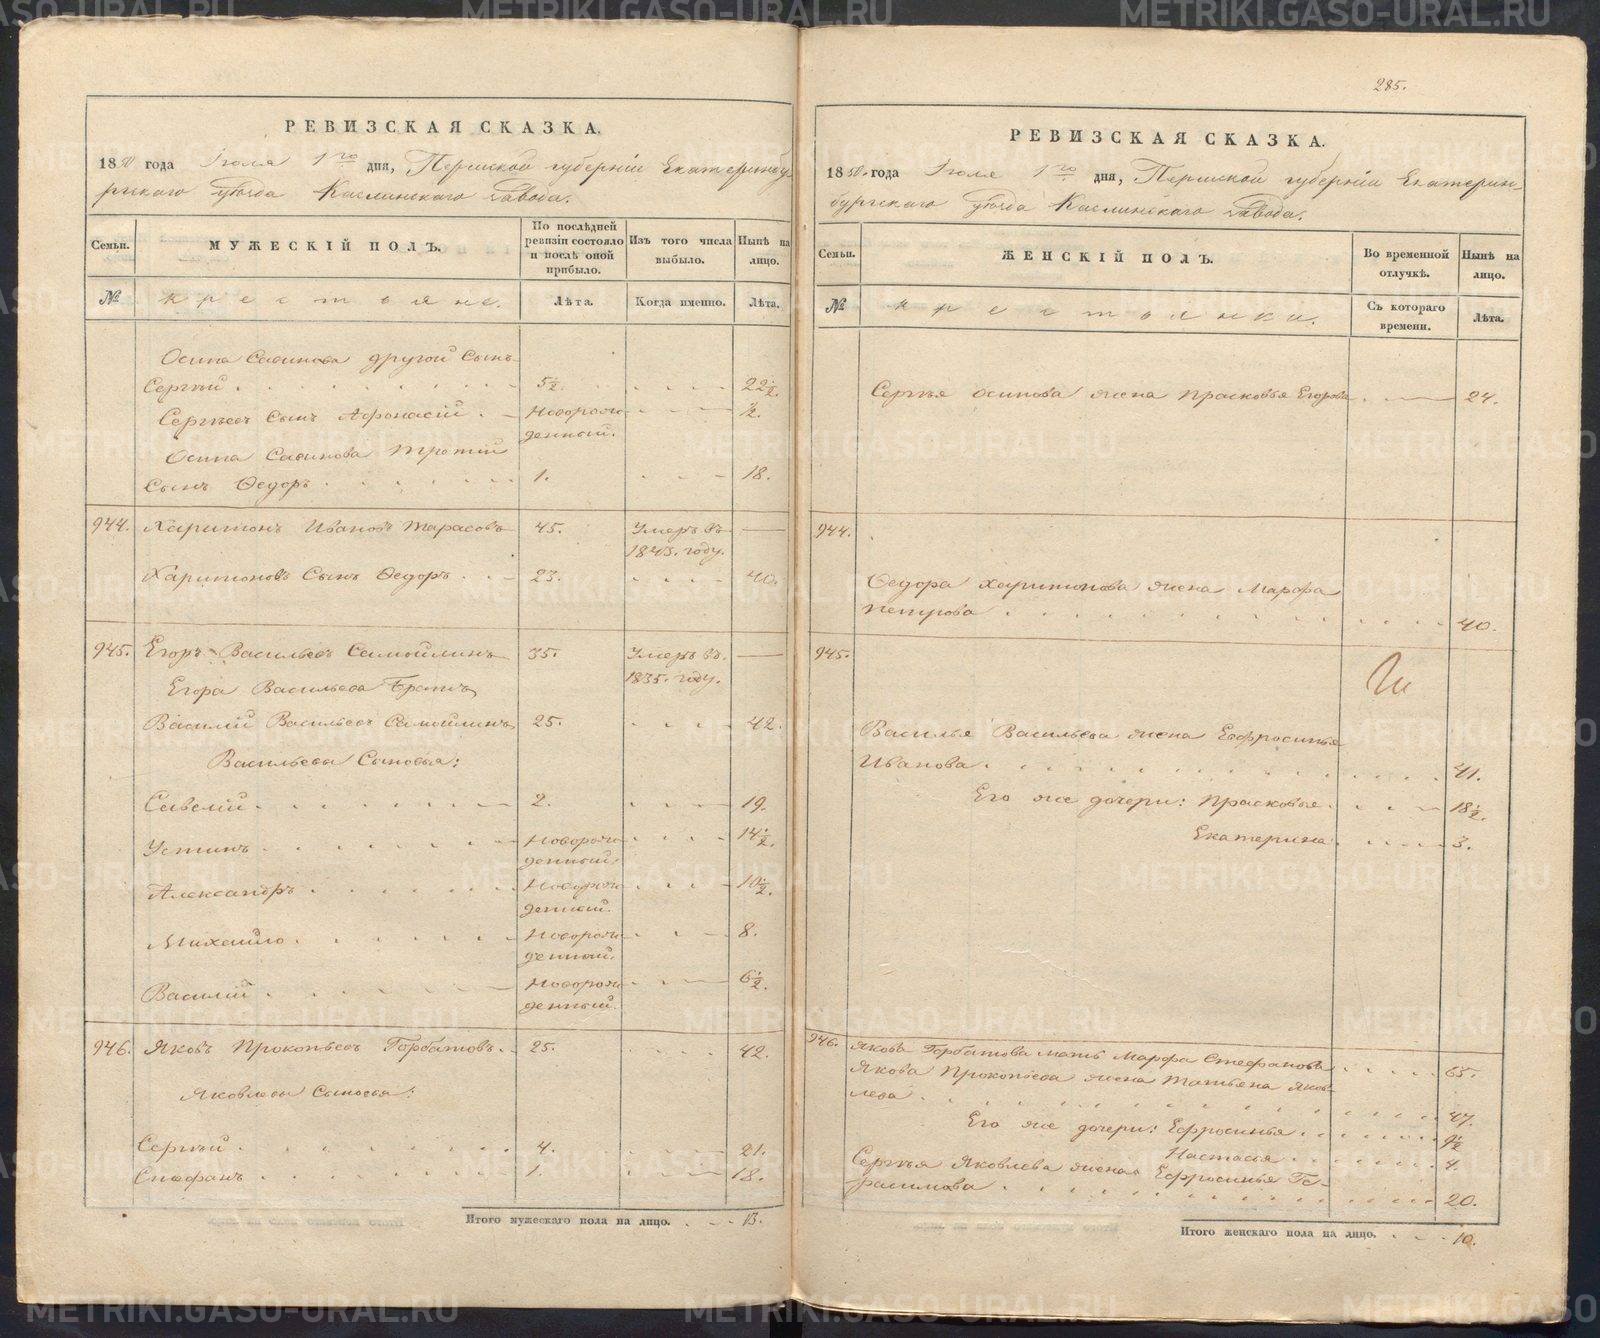 285.
РЕВИЗСКАЯ СКАЗКА.
1850 года Июля 1го дня, Пермской губернiи Екатеринбу-
ргскаго уѣзда Каслинскаго завода.
Семьи.
МУЖЕСКIЙ ПОЛЪ.
По послѣдней ревизiи состояло и послѣ оной прибыло.
Изъ того числа выбыло.
Нынѣ на лицо.
№
крестьяне.
Лѣта.
Когда именно.
Лѣта.
Осипа Савинова другой сынъ
Сергѣй 5½. 22½.
Сергѣевъ сынъ Афонасiй Новорож- ½.
денный.
Осипа Савинова третiй
сынъ Ѳедоръ 1. 18.
944. Харитонъ Ивановъ Тарасовъ 45. Умеръ въ —
1843. году.
Харитоновъ сынъ Ѳедоръ 23. 40.
945. Егоръ Васильевъ Самойлинъ 35. Умеръ въ —
1835. году.
Егора Васильева братъ
Василiй Васильевъ Самойлинъ 25. 42.
Васильевы сыновья:
Савелiй 2. 19.
Устинъ Новорож- 14½.
денный.
Александръ Новорож- 10½.
денный.
Михайло Новорож- 8.
денный.
Василiй Новорож- 6½.
денный.
946. Яковъ Прокопьевъ Горбатовъ 25. 42.
Яковлевы сыновья:
Сергѣй 4. 21.
Стефанъ 1. 18.
Итого мужескаго пола на лицо. 13.
РЕВИЗСКАЯ СКАЗКА.
1850 года Июля 1го дня, Пермской губернiи Екатерин-
бургскаго уѣзда Каслинскаго завода.
Семьи.
ЖЕНСКIЙ ПОЛЪ.
Во временной отлучкѣ.
Нынѣ на лицо.
№
крестьянки.
Съ котораго времени.
Лѣта.
Сергѣя Осипова жена Прасковья Егорова 24.
944.
Ѳедора Харитонова жена Марфа
Петрова 40.
945.
Василья Васильева жена Ефросинья
Иванова 41.
Его же дочери: Прасковья 18½.
Екатерина 3.
946. Якова Горбатова мать Марфа Стефанова 65.
Якова Прокопьева жена Татьяна Яков-
лева 47.
Его же дочери: Ефросинья 9½
Настасья 4.
Сергѣя Яковлева жена Ефросинья Ге-
расимова 20.
Итого женскаго пола на лицо. 10.
METRIKI.GASO-URAL.RU